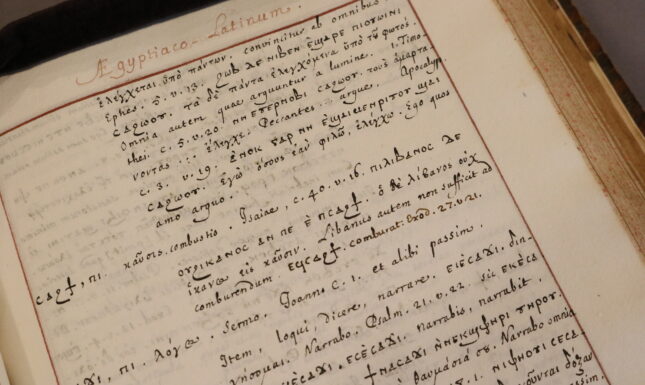 Ægyptiaco-Latinum.
ἐλέγχεται ὑπὸ πάντων. convincitur ab omnibus
Ephes. 5. v. 13. ϩⲱⲃ ⲇⲉ ⲛⲓⲃⲉⲛ ⲉϣⲁⲣⲉ ⲡⲓⲟⲩⲱⲓⲛⲓ
ⲥⲁϩⲱⲟⲩ. τὰ δὲ πάντα ἐλεγχόμενα ὑπὸ τοῦ φωτός
Omnia autem quae arguuntur a lumine. 1. Timo-
thei. c. 5. v. 20. ⲛⲏ ⲉⲧⲉⲣⲛⲟⲃⲓ ⲥⲁϩⲱⲟⲩ. τοὺς ἁμαρτά-
νοντας ... ἔλεγχε. Peccantes . argue. Apocalyps.
c. 3. v. 19. ⲁⲛⲟⲕ ⲅⲁⲣ ⲛⲏ ⲉϣⲁⲓⲙⲉⲛⲣⲓⲧⲟⲩ ϣⲁⲓ
ⲥⲁϩⲱⲟⲩ. Ἐγὼ ὅσους ἐὰν φιλῶ, ἐλέγχω. Ego quos
amo arguo.
ⲥⲁϩϯ, ⲡⲓ. καῦσις. combustio. Isaiae, c. 40. v. 16. ⲡⲓⲗⲓⲃⲁⲛⲟⲥ ⲇⲉ
ⲟⲩϩⲓⲕⲁⲛⲟⲥ ⲁⲛ ⲡⲉ ⲉⲡⲥⲁϩϯ. ὁ δὲ λίβανος οὐχ
ἱκανὸς εἰς καῦσιν. Libanus autem non sufficit ad
comburendum. ⲉϥⲥⲁϩϯ. comburat. Exod. 27. v. 21.
ⲥⲁϫⲓ, ⲡⲓ. λόγος. Sermo. Joann. c. 1. et alibi passim.
Item, loqui, dicere, narrare. ⲉⲓⲉⲥⲁϫⲓ. διη-
γήσομαι. Narrabo, Psalm. 21. v. 22. sic ⲉⲕⲉⲥⲁ
ϫⲓ. ⲉϥⲉⲥⲁϫⲓ. narrabis, narrabit.
ϯⲛⲁⲥⲁϫⲓ ⲛⲛⲉⲕϣⲫⲏⲣⲓ ⲧⲏⲣⲟⲩ.
θαυμάσιά σου. Narrabo omnia
1. ⲛⲓⲫⲏⲟⲩⲓ ⲥⲉⲥⲁ
δόξαν